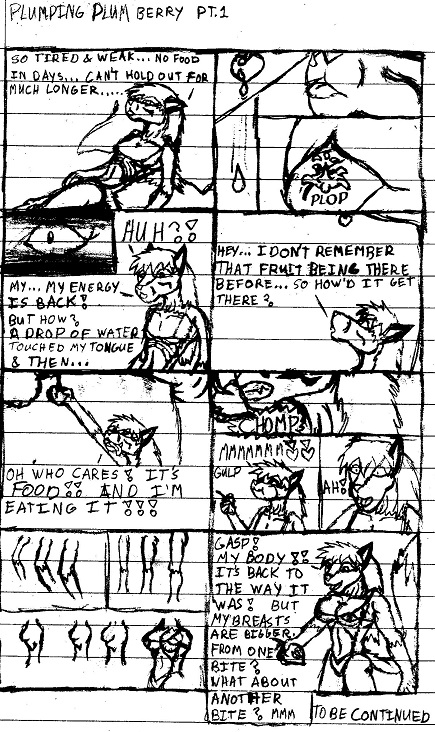 PLUMPING PLUM BERRY PT.1
SO TIRED & WEAK... NO FOOD
IN DAYS... CAN'T HOLD OUT FOR
MUCH LONGER.....
PLOP
HUH?!
MY... MY ENERGY
IS BACK!
BUT HOW?
A DROP OF WATER
TOUCHED MY TONGUE
& THEN...
HEY... I DON'T REMEMBER
THAT FRUIT BEING THERE
BEFORE... SO HOW'D IT GET
THERE?
OH WHO CARES! IT'S
FOOD!! AND I'M
EATING IT!!!
CHOMP
MMMMMMM
GULP
AH!
GASP!
MY BODY!!
IT'S BACK TO
THE WAY IT
WAS! BUT
MY BREASTS
ARE BIGGER.
FROM ONE
BITE?
WHAT ABOUT
ANOTHER
BITE? MMM
TO BE CONTINUED